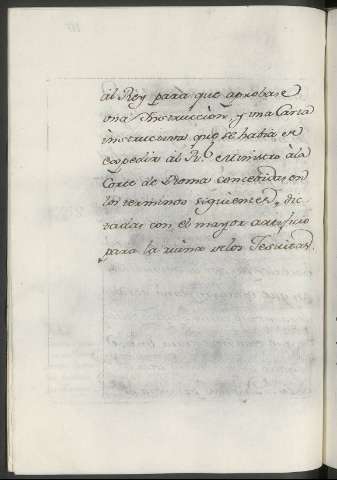 al Rey para que aprobase
una Instruccion, y una Carta
instructiva que se habia de
expedir al Rl. Ministro à la
Corte de Roma concebidas en
los terminos siguientes, dic
tadas con el mayor artificio
para la ruina de los Jesuitas.